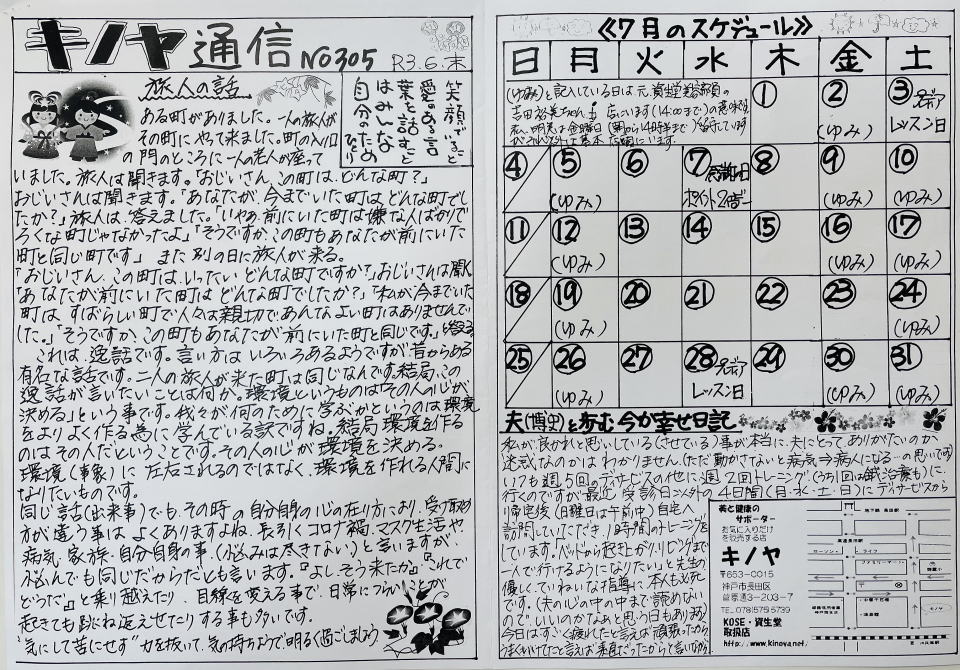 キノヤ通信 NO305 R3.6.末
旅人の話
笑顔でいること
愛のある言
葉を話すこと
はみんな
自分のため
ひとり
ある町がありました。一人の旅人が
その町にやって来ました。町の入り口
の門のところに一人の老人が座って
いました。旅人は聞きます。「おじいさん、この町は、どんな町?」
おじいさんは聞きます。「あなたが、今までいた町はどんな町でし
たか?」旅人は、答えました。「いやあ、前にいた町は嫌な人ばかりで
ろくな町じゃなかったよ」「そうですか、この町もあなたが前にいた
町と同じ町です」 また別の日に旅人が来る。
「おじいさん、この町は、いったいどんな町ですか?」おじいさんは聞く
「あなたが前にいた町はどんな町でしたか?」「私が今までいた
町は、すばらしい町で人々は親切であんなよい町はありませんで
した。」「そうですか、この町もあなたが前にいた町と同じです。」と答える
これは、逸話です。言い方はいろいろあるようですが、昔からある
有名な話です。二人の旅人が来た町は同じなんです。結局、この
逸話が言いたいことは何か。環境というものは「その人の心が
決める」という事です。我々が何のために学ぶかというのは環境
をよりよく作る為に学んでいる訳ですね。結局環境を作る
のはその人だということです。その人の心が環境を決める。
環境(事象)に左右されるのではなく、環境を作れる人間に
なりたいものです。
同じ話(出来事)でも、その時の自分自身の心の在り方により、受け取め
方が違う事はよくありますよね。長引くコロナ禍、マスク生活や
病気、家族、自分自身の事、(悩みは尽きない)と言いますが、
悩んでも同じだからだとも言います。『よしそう来たか』『これで
どうだ』と乗り越えたり、目線を変える事で、日常につらいことが
起きても跳ね返えせたりする事も多いです。
"気にして苦にせず"力を抜いて、気の持ちようで明るく過ごしましょう
《7月のスケジュール》
日 月 火 水 木 金 土
(ゆみ)と記入している日は元資生堂美容部員の
吉田裕美ちゃんも店にいます(14:00まで)の意味です
私、明美は金曜日(朝から14時半まで)留守しています
がそれ以外は基本店舗にいます。
① ②(ゆみ) ③ ペディア レッスン日
④ ⑤(ゆみ) ⑥ ⑦ 感謝の日 ポイント2倍デー ⑧ ⑨(ゆみ) ⑩(ゆみ)
⑪ ⑫(ゆみ) ⑬ ⑭ ⑮ ⑯(ゆみ) ⑰(ゆみ)
⑱ ⑲(ゆみ) ⑳ ㉑ ㉒ ㉓ ㉔(ゆみ)
㉕ ㉖(ゆみ) ㉗ ㉘ ペディア レッスン日 ㉙ ㉚(ゆみ) ㉛(ゆみ)
夫(博史)と歩む 今が幸せ日記
私が、良かれと思いしている(させている)事が本当に、夫にとって、ありがたいのか
迷惑なのかはわかりません。(ただ動かさないと病気→病人になる…の思いです)
いつも週5回のデイサービスの他に週2回トレーニング(うち1回は鍼治療も)に、
行くのですが最近、受診日以外の4日間(月・水・土・日)にデイサービスから
帰宅後(日曜日は午前中)自宅へ
訪問していただき、1時間のトレーニングを
しています。「ベットから起き上がり、リビングまで
一人で行けるようになりたい」と先生の
優しく、ていねいな指導に本人も必死
です。(夫の心の中の中まで読めない
ので、いいのかなぁと思う日もあります)
今日はすごく疲れたと言えば頑張ったから
うまくいけてたと言えば素直だったからと言いながら
美と健康の
サポーター
お気に入りだけ
を販売する店
キノヤ
〒653-0015
神戸市長田区
菅原通3-203-7
TEL.078(575)5739
KOSE・資生堂
取扱店
http://www.kinoya.net/
地下鉄 長田駅
高速長田駅
ローソン
ライフ
ファミリーマート
キノヤ